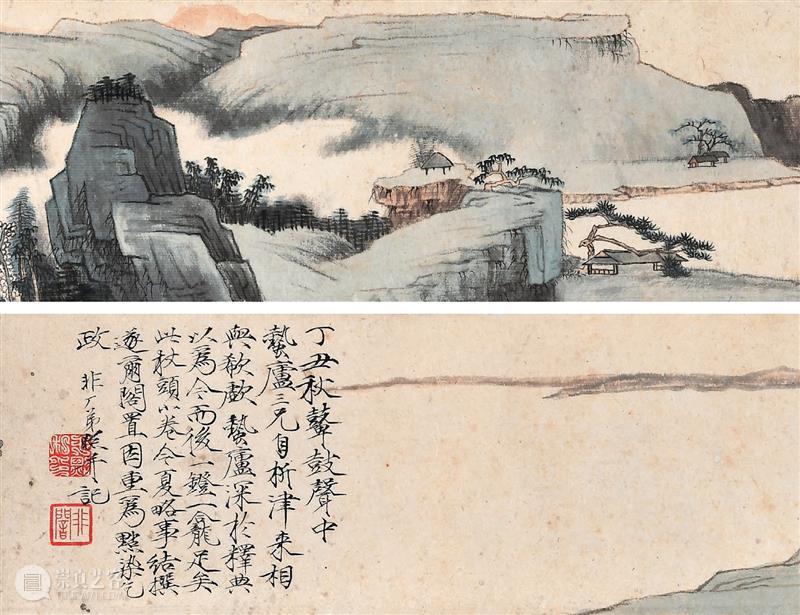 丁丑秋鼙鼓聲中
蟄廬三兄自析津來相
與欷歔蟄廬深於釋典
以爲今而後一鐙一龕足矣
此杖頭小卷今夏略事結撰
遂爾閣置因重爲點染乞
政
非厂弟照并記
非闇
崇真艺客